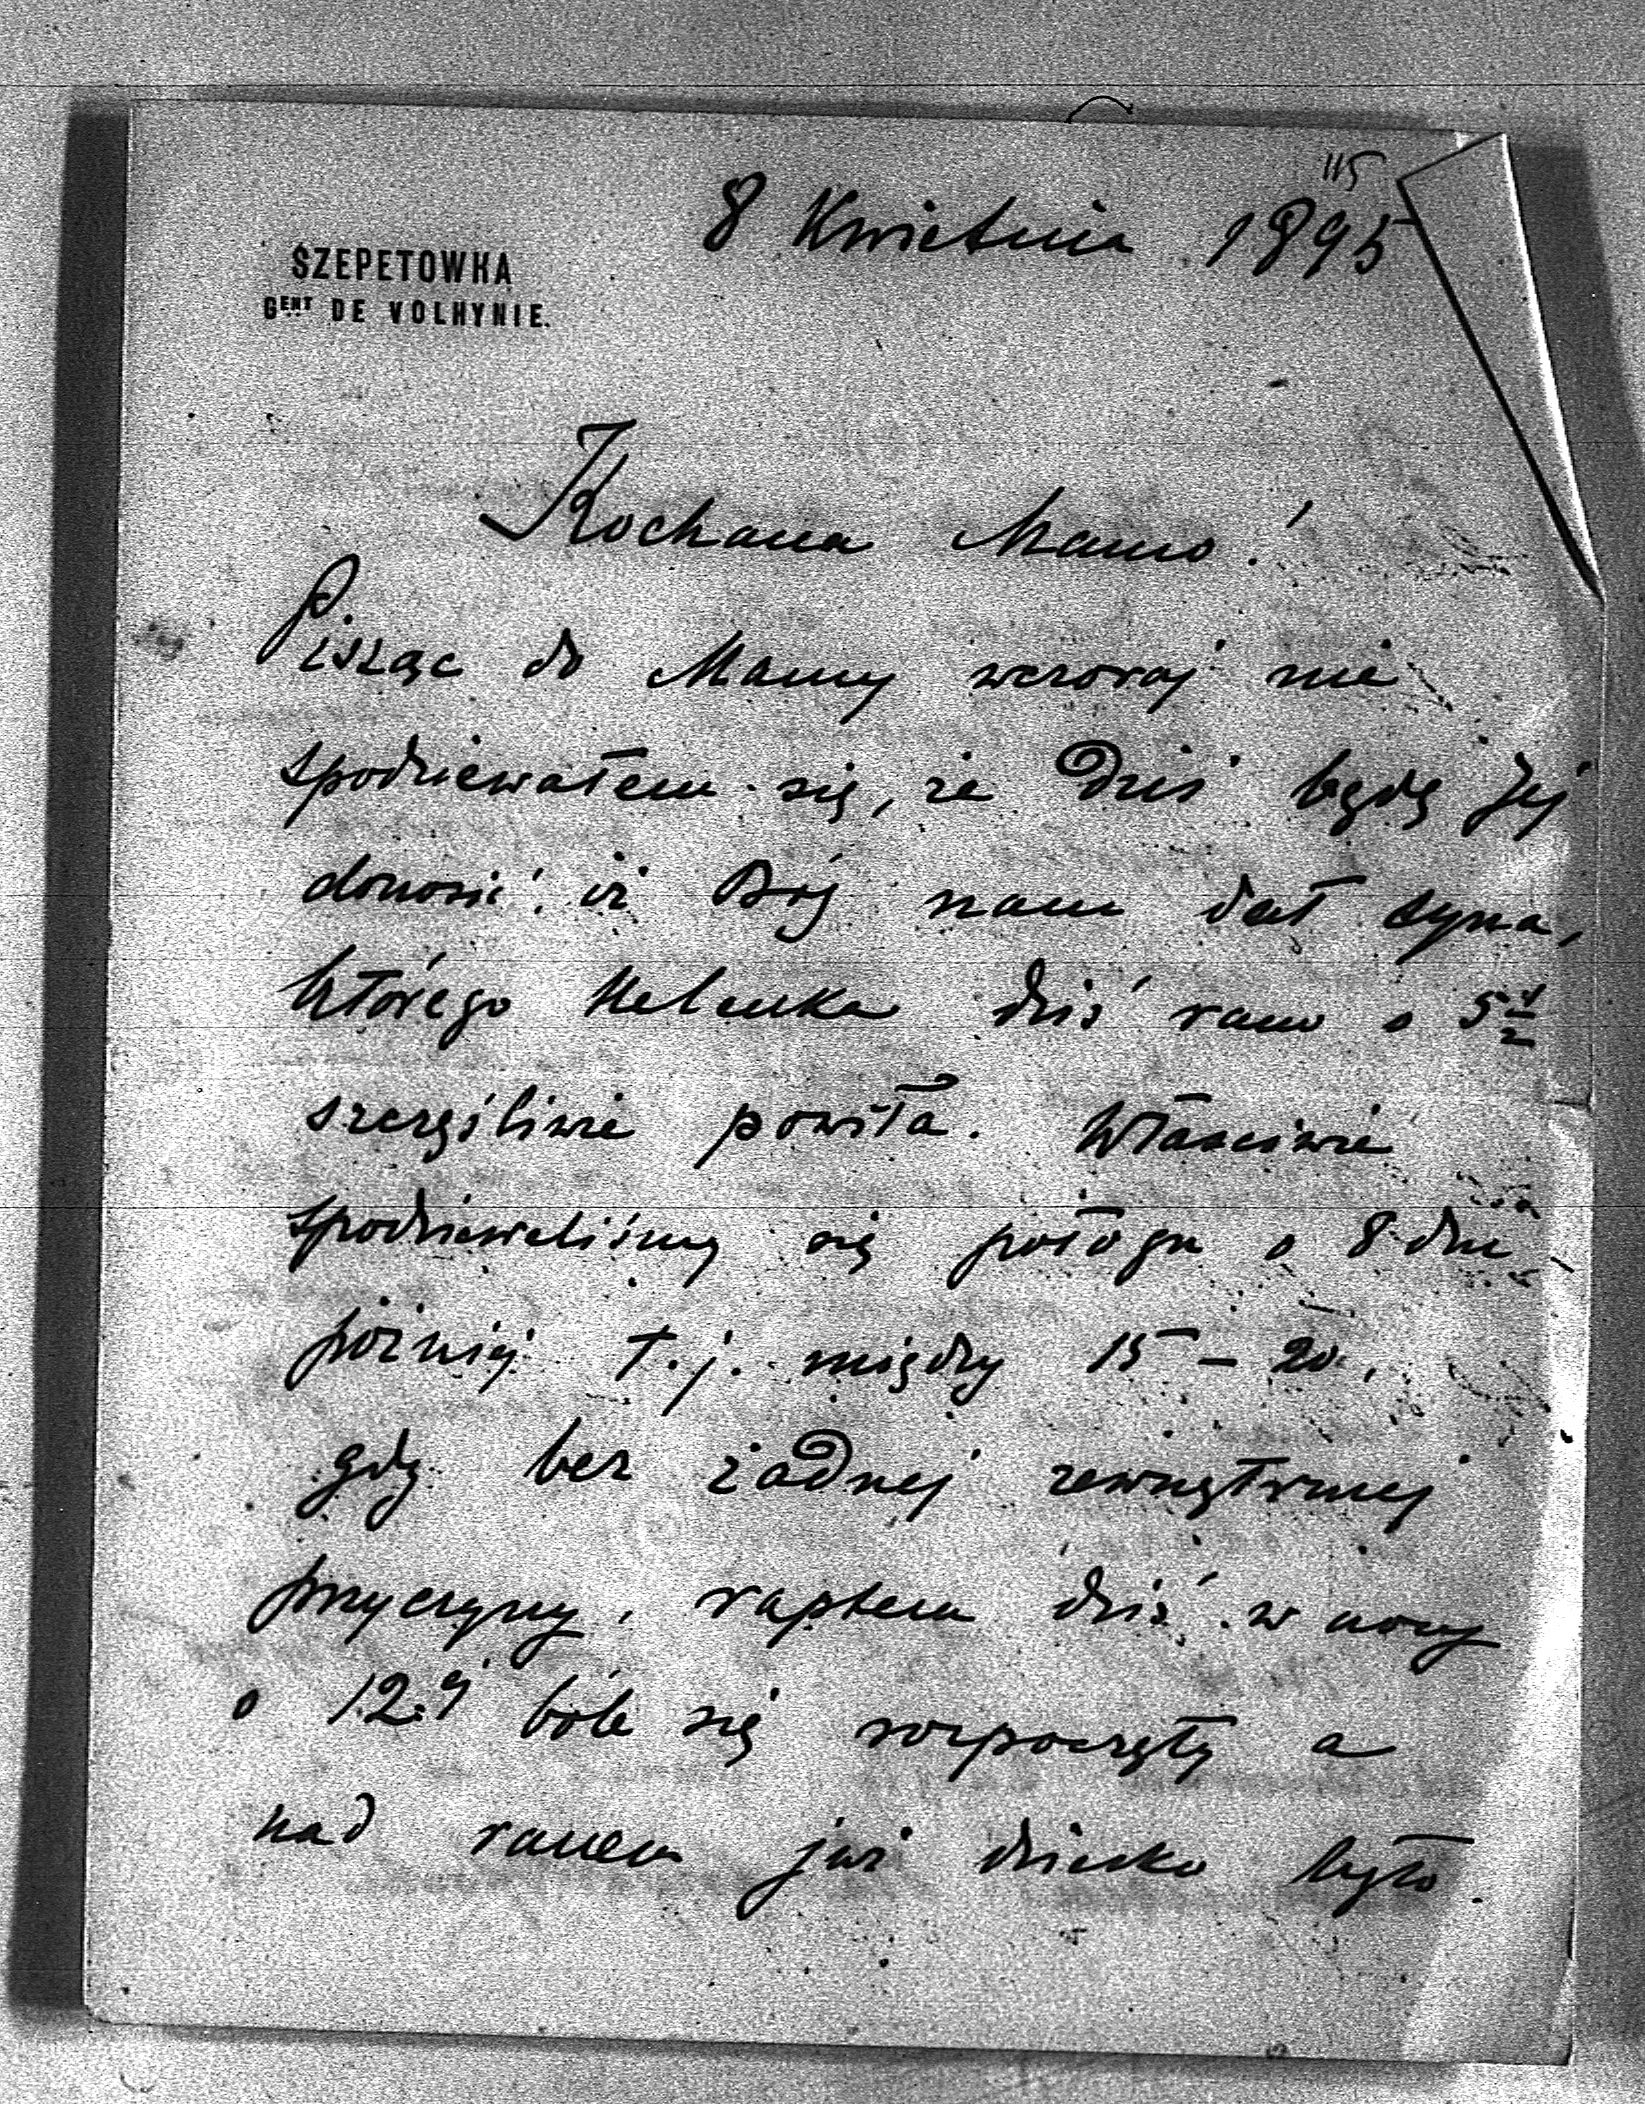 115
8 Kwietnia 1895
SZEPETOWKA
GENT DE VOLHYNIE.
Kochana Mamo!
Pisząc do Mamy wczoraj nie
spodziewałem się, że dziś będę Jej
donosić, iż Bóg nam dał syna,
którego Helenka dziś rano o 5 1/2
szczęśliwie powiła. Właściwie
spodziewaliśmy się połogu o 8 dni
później t.j. między 15 – 20,
gdy bez żadnej zewnętrznej
przyczyny, raptem dziś w nocy
o 12ej bóle się rozpoczęły a
nad ranem już dziecko było.